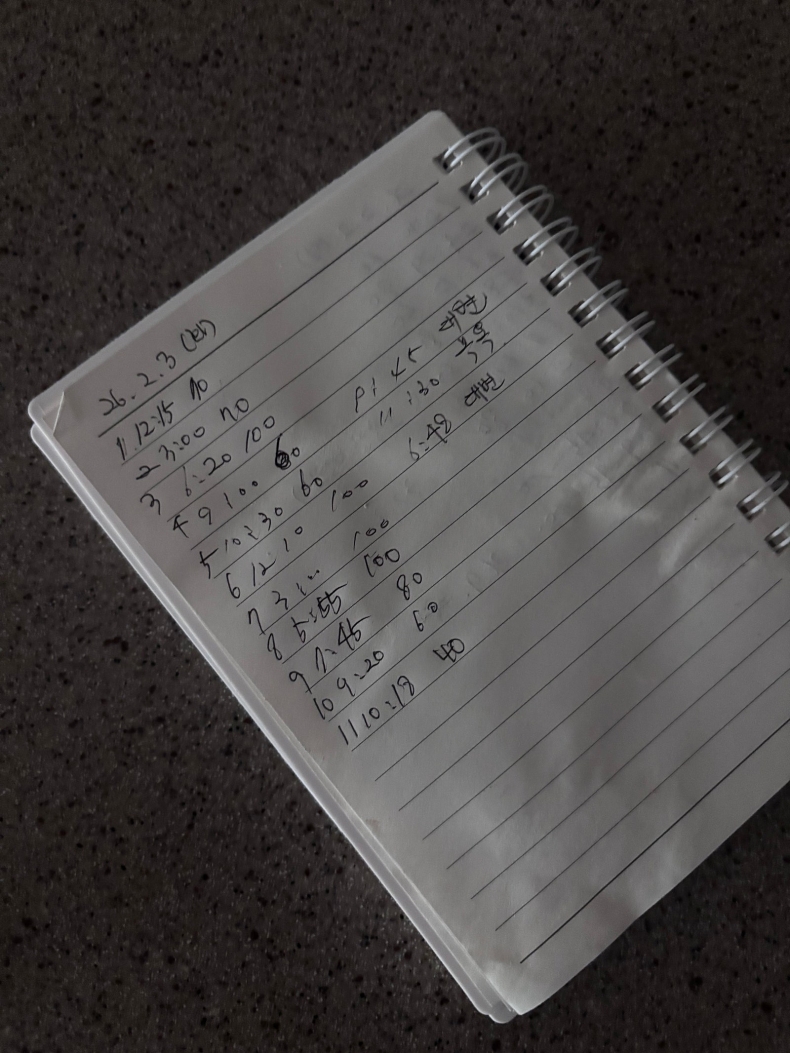 26. 2. 3 (화)
1. 12:15 110
2 3:00 110
3 6:20 100
4 9:00 60 8:45 대변
5 10:30 60 11:30
6 12:10 100 6:48 대변
7 3:00 100
8 5:55 100
9 7:45 80
10 9:20 60
11 10:18 40